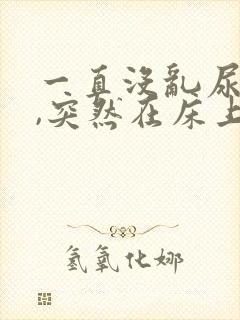 一直没乱尿
,突然在床上
氢氧化娜